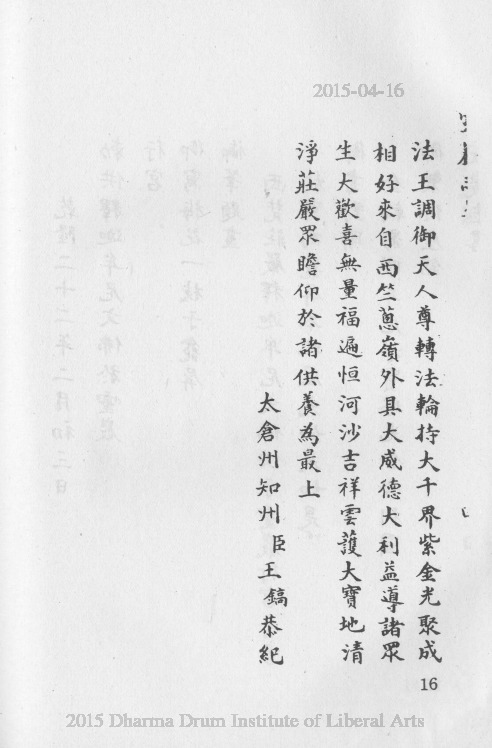 2015-04-16
法王調御天人尊轉法輪持大千界紫金光聚成
相好來自西竺蔥嶺外具大威德大利益導諸眾
生大歡喜無量福遍恒河沙吉祥雲護大寶地清
淨莊嚴眾瞻仰於諸供養為最上
太倉州知州臣王鎬恭紀
16
2015 Dharma Drum Institute of Liberal Arts